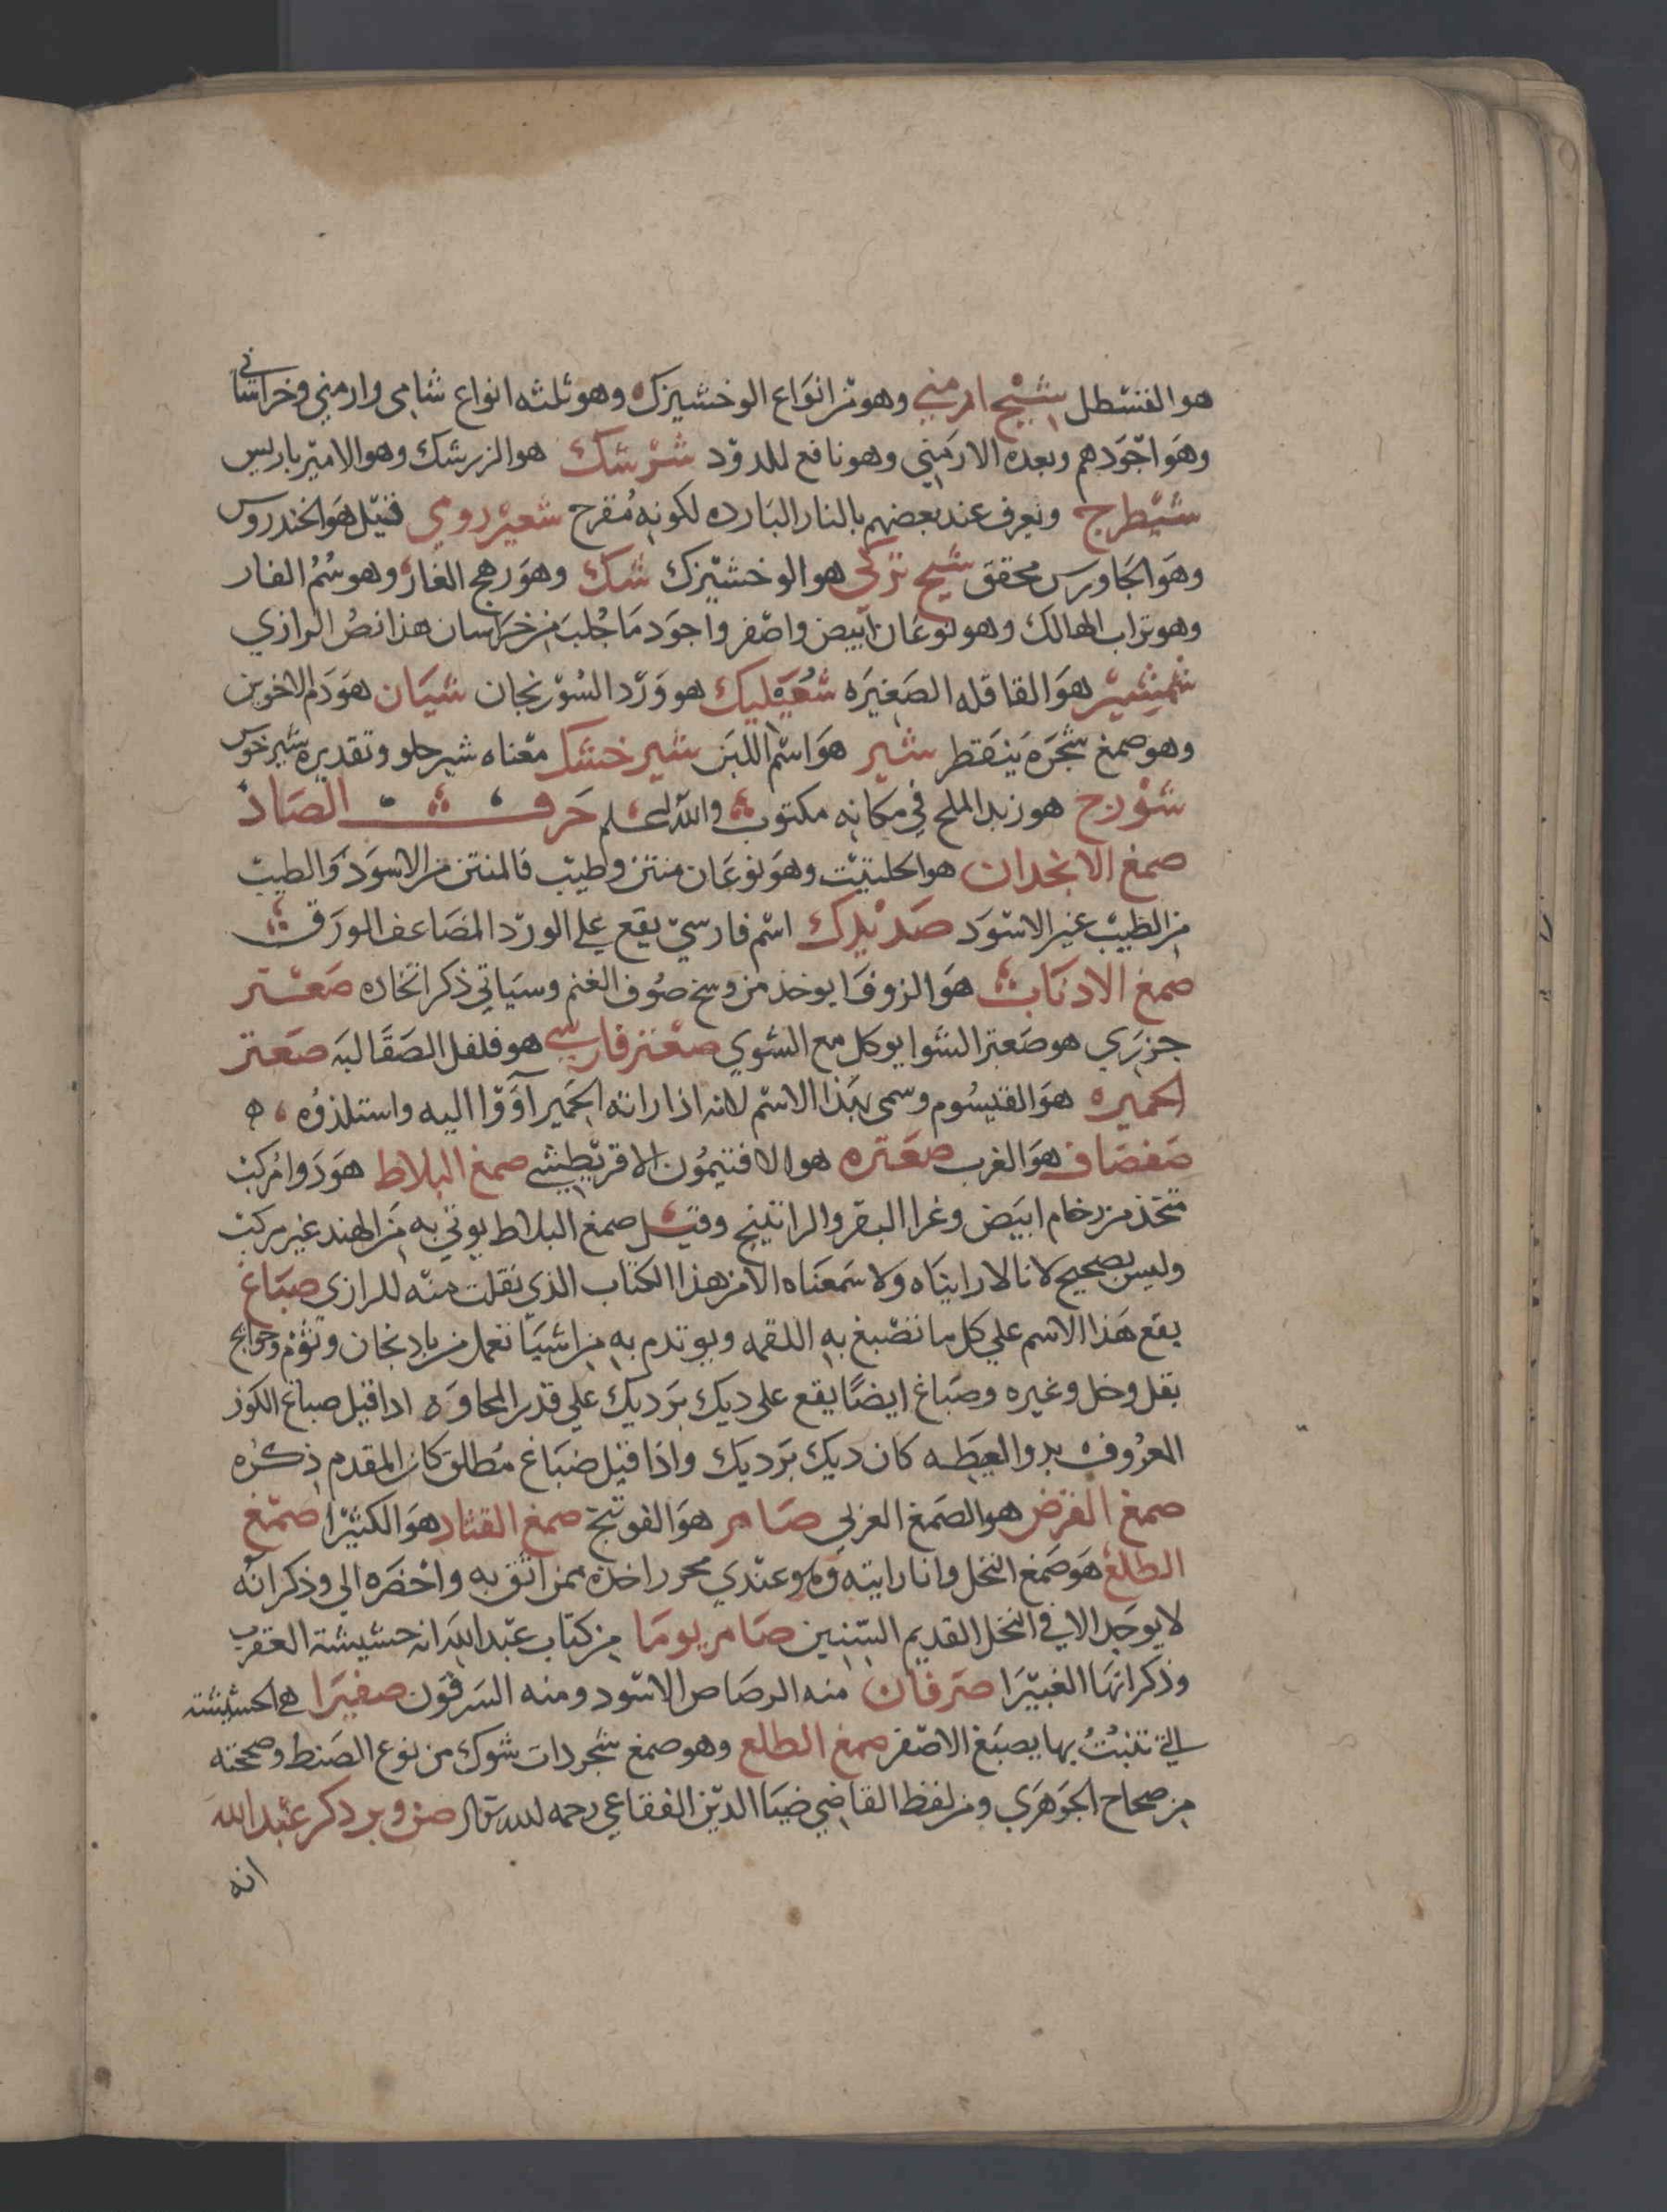 هو القسطل شيح ارمني وهو من انواع الوخشيزك وهو ثلثه انواع شامي وارمني وخراساني
وهو اجودهم وبعده الارمني وهو نافع للدود شرشك هو الزرشك وهو الامير باريس
شيطرج ويعرف عند بعضهم بالنار البارده لكونه مقرح شعير رومي قيل هو الخندروس
وهو الجاورس محقق شيح تركي هو الوخشيزك شك وهو رهج الغار وهو سم الفار
وهو تراب الهالك وهو نوعان ابيض واصفر واجود ما جلب من خراسان هذا نص الرازي
شمشير هو القاقله الصغيره هو ورد السورنجان شيان هو دم الاخوين
وهو صمغ شجره ينقط شير هو اسم اللبن شير خشك معناه شير حلو وتقديره شير خوش
شورج هو زبد الملح في مكانه مكتوب والله اعلم حرف الصاد
صمغ الانجدان هو الحلتيت وهو نوعان منتن وطيب فالمنتن من الاسود والطيب
من الطيب غير الاسود صد بلرك اسم فارسي يقع علي الورد المضاعف الورق
صمغ الادناب هو الزوفا يوخذ من وسخ صوف الغنم وسياتي ذكر اتخاده صعتر
جزري هو صعتر الشوا يوكل مع الشوي صعتر فارسي هو فلفل الصقالبه صعتر
الحميره هو القيسوم وسمى بهذا الاسم لانه اذا راته الحمير آووا اليه واستلذوه ه
صفصاف هو الغرب صعتره هو الافتيمون الاقريطيشي صمغ البلاط هو دوا مركب
متخذ من رخام ابيض وغرا البقر والراتينج وقيل صمغ البلاط يوتي به من الهند غير مركب
وليس بصحيح لانا لا رايناه ولا سمعناه الا من هذا الكتاب الذي نقلت منه للرازي صباغ
يقع هذا الاسم علي كل ما تصبغ به اللقمه ويوتدم به من اشيا تعمل من بادنجان وثوم وحوايج
بقل وخل وغيره وصباغ ايضا يقع على ديك برديك علي قدر المحاوره ادا قيل صباغ الكوز
المعروف بدوا العيطه كان ديك برديك واذا قيل ضباغ مطلق كان المقدم ذكره
صمغ القرض هو الصمغ العربي صامر هو الفوتنج صمغ القتاد هو الكثيرا صمغ
الطلع هو صمغ النخل وانا رايته وهو عندي محرر اخذه ممن اثق به واحضره الي وذكر انه
لا يوجد الا في النخل القديم السنين صامريوما من كتاب عبد الله انه حشيشة العقرب
وذكر انها الغبيرا صرفان منه الرصاص الاسود ومنه السرقون صفيرا هي الحشيشه
التي تنبت بها يصبغ الاصفر صمغ الطلع وهو صمغ شجر دات شوك من نوع الصنط وصححته
من صحاح الجوهري ومن لفظ القاضي ضيا الدين الفقاعي رحمه الله قال صنوبر دكر عبد الله
انه